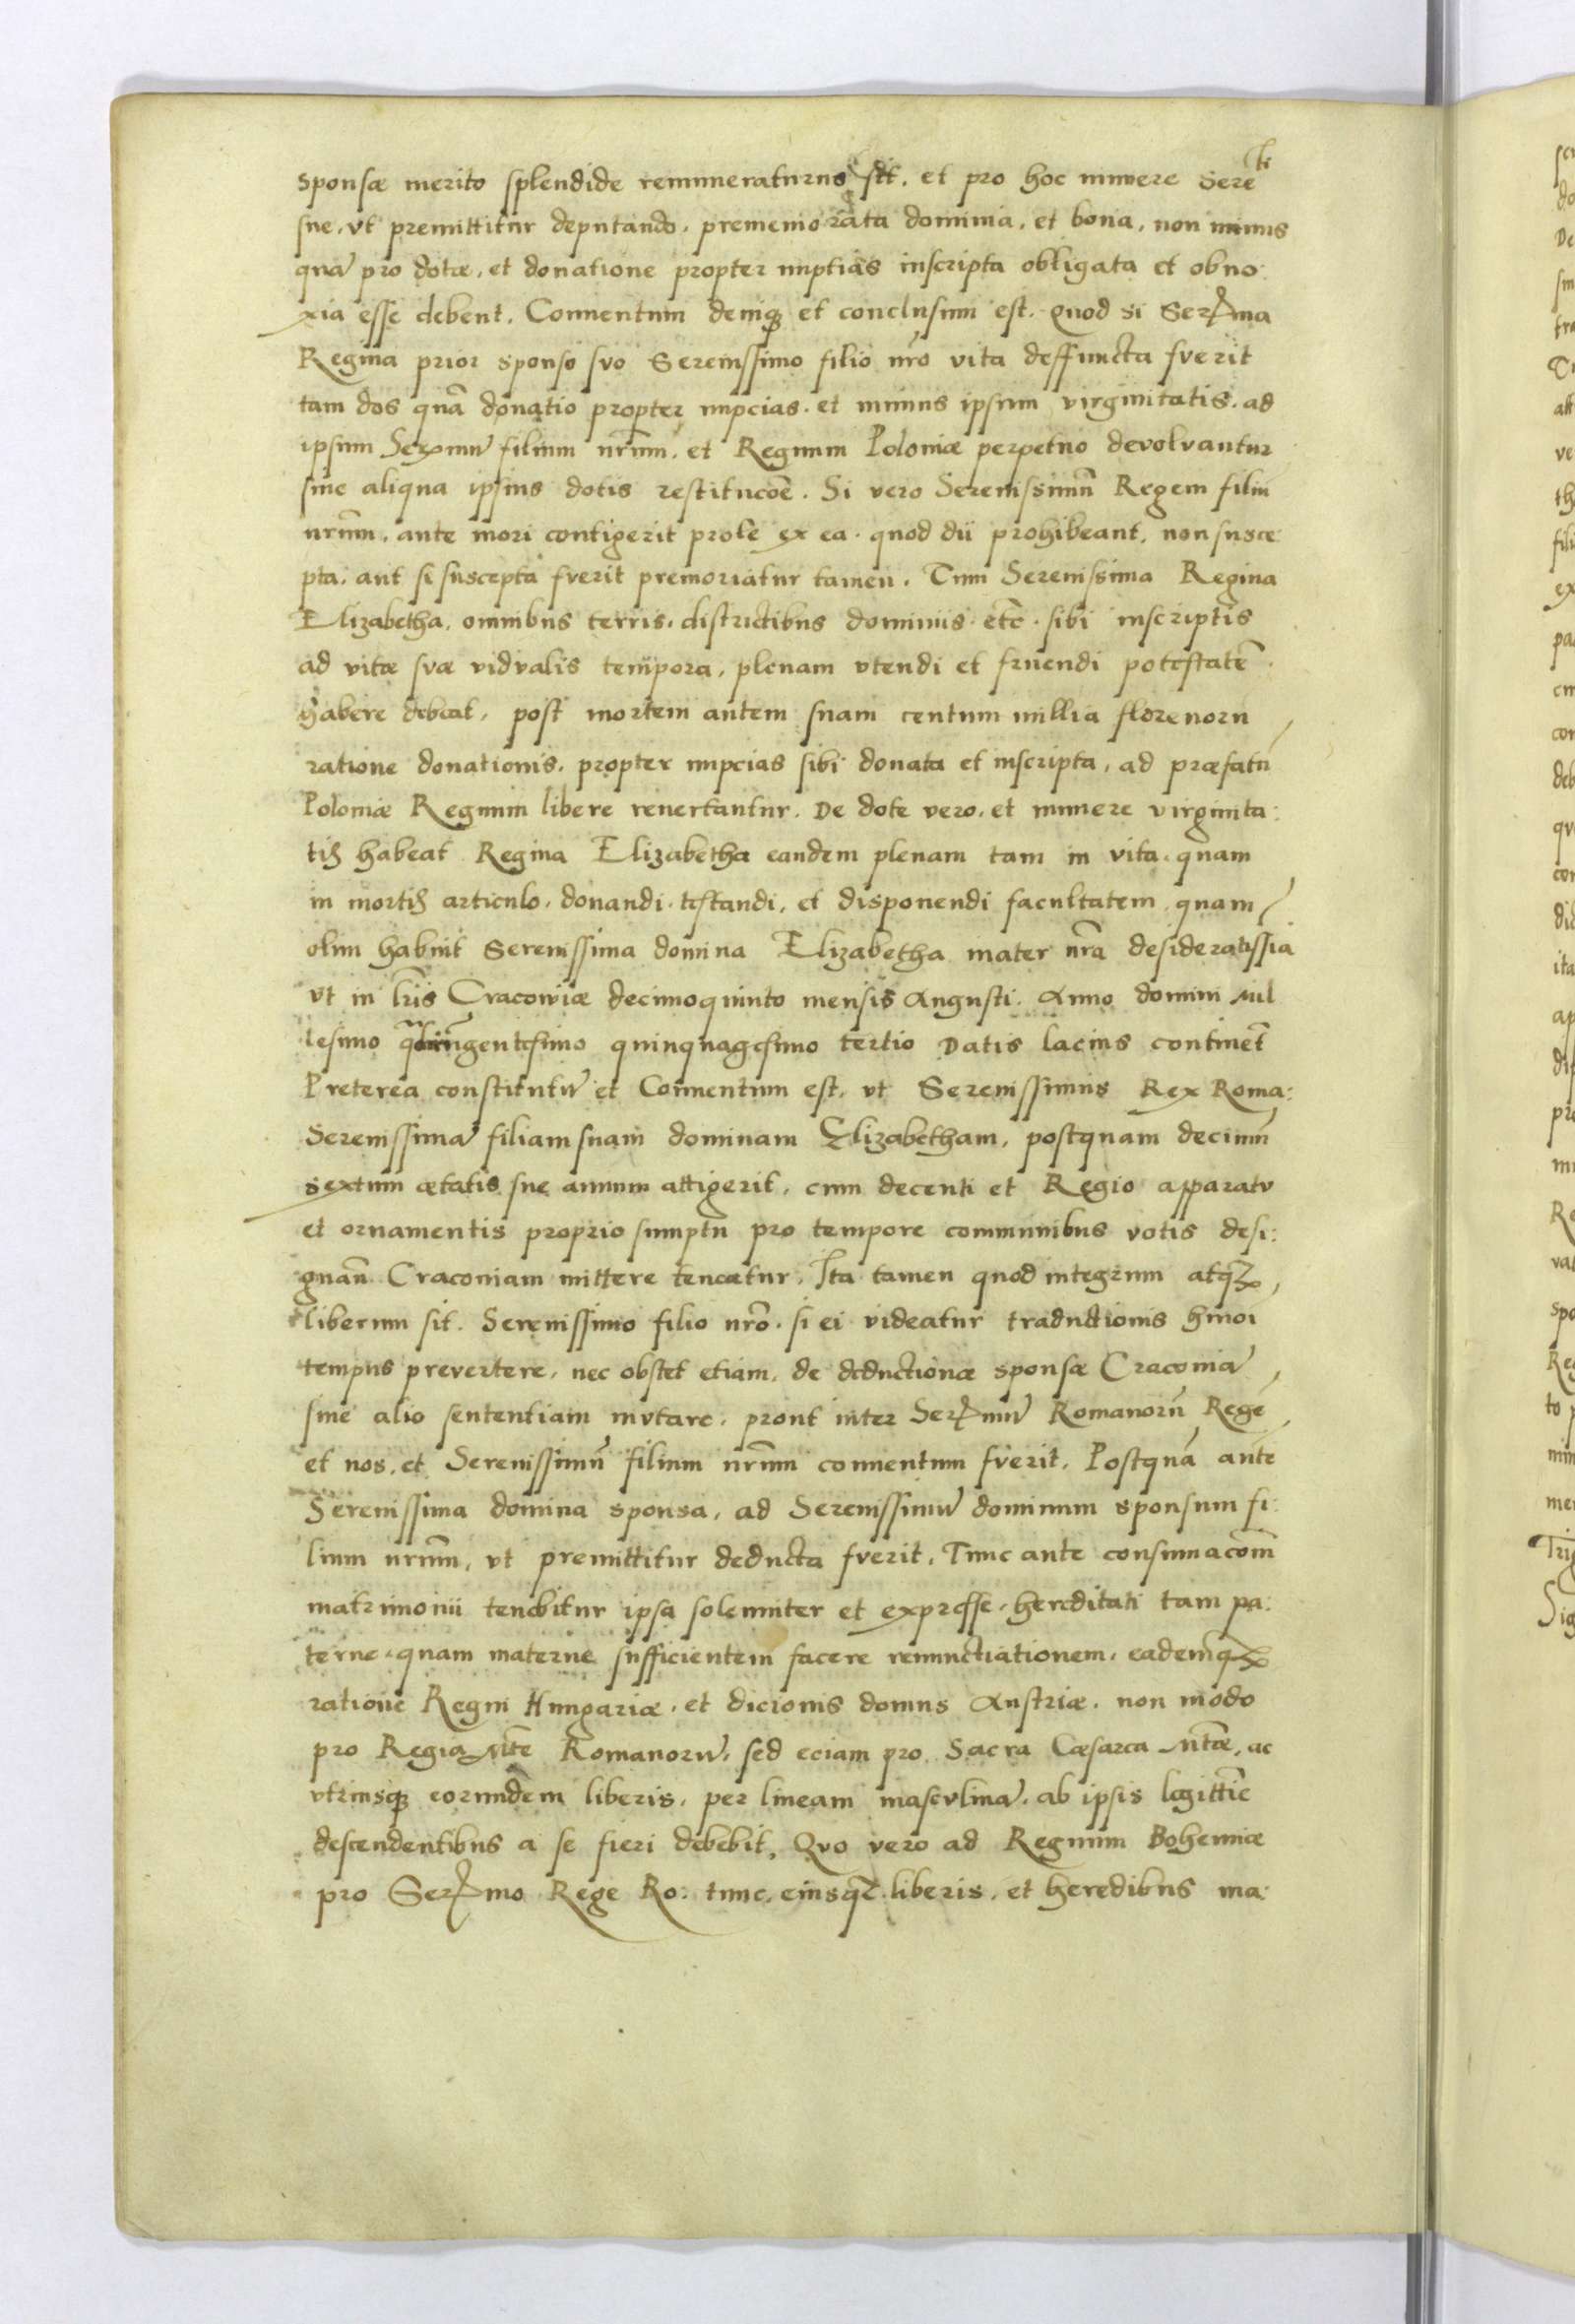 sponsæ merito splendide remuneraturus sit. et pro hoc munere Sere^ti
sue, vt premittitur deputando, prememorata dominia, et bona, non minus
quā pro dotæ, et donatione propter nuptias inscripta obligata et obno:
xia esse debent. Conuentum deniq; et conclusum est. quod si Serma
Regina prior sponso svo Serenissimo filio nr̄o vita deffuncta fverit
tam dos quā donatio propter nupcias. et munus ipsum virginitatis. ad
ipsum Sermū filium nr̄um, et Regnum Poloniæ perpetuo devolvantur
sine aliqua ipsius dotis restitucōe. Si vero Serenissimū Regem filiū
nr̄um, ante mori contigerit prole ex ea. quod dii prohibeant, non susce:
pta, aut si suscepta fverit premoriatur tamen. Tum Serenissima Regina
Elizabetha, omnibus terris, districtibus dominiis etc̄. sibi inscriptis
ad vitæ svæ vidvalis tempora, plenam vtendi et fruendi potestatē
habere debeat, post mortem autem suam centum millia florenorū
ratione donationis, propter nupcias sibi donata et inscripta, ad præfatū
Poloniæ Regnum libere reuertantur. De dote vero, et munere virginita:
tis habeat Regina Elizabetha eandem plenam tam in vita quam
in mortis articulo, donandi, testandi, et disponendi facultatem, quam
olim habuit Serenissima domina Elizabetha mater nr̄a desideratissīa
vt in lr̄is Cracowiæ decimoquinto mensis Augusti. Anno domini Mil
lesimo quadringentesimo quinquagesimo tertio Datis lacius continet̄
Preterea constitutū et Conuentum est, vt Serenissimus Rex Roma:
Serenissimā filiam suam dominam Elizabetham, postquam decimū
sextum ætatis sue annum attigerit, cum decenti et Regio apparatv
et ornamentis proprio sumptu pro tempore communibus votis desi:
gnan̄ Cracouiam mittere teneatur. Ita tamen quod integrum atq;
liberum sit. Serenissimo filio nr̄o. si ei videatur traductionis hmōi
tempus prevertere, nec obstet etiam, de deductionæ sponsæ Cracouiā
siue alio sententiam mvtare, prout inter Sermū Romanorū Regē
et nos, et Serenissimū filium nr̄um conuentum fverit. Postquā ante
Serenissima domina sponsa, ad Serenissimū dominum sponsum fi:
lium nr̄um, vt premittitur deducta fverit. Tunc ante consumacōm
matrimonii tenebitur ipsa solenniter et expresse, hereditati tam pa:
terne quam materne sufficientem facere renunctiationem, eademq;
ratione Regni Hungariæ, et dicionis domus Austriæ. non modo
pro Regia Mte Romanorū, sed eciam pro Sacra Cæsarea Mtæ, ac
vtriusq; eorundem liberis, per lineam mascvlinā, ab ipsis legittīe
descendentibus a se fieri debebit. Qvo vero ad Regnum Bohemiæ
pro Sermo Rege Ro: tunc, eiusq; liberis, et heredibus ma: